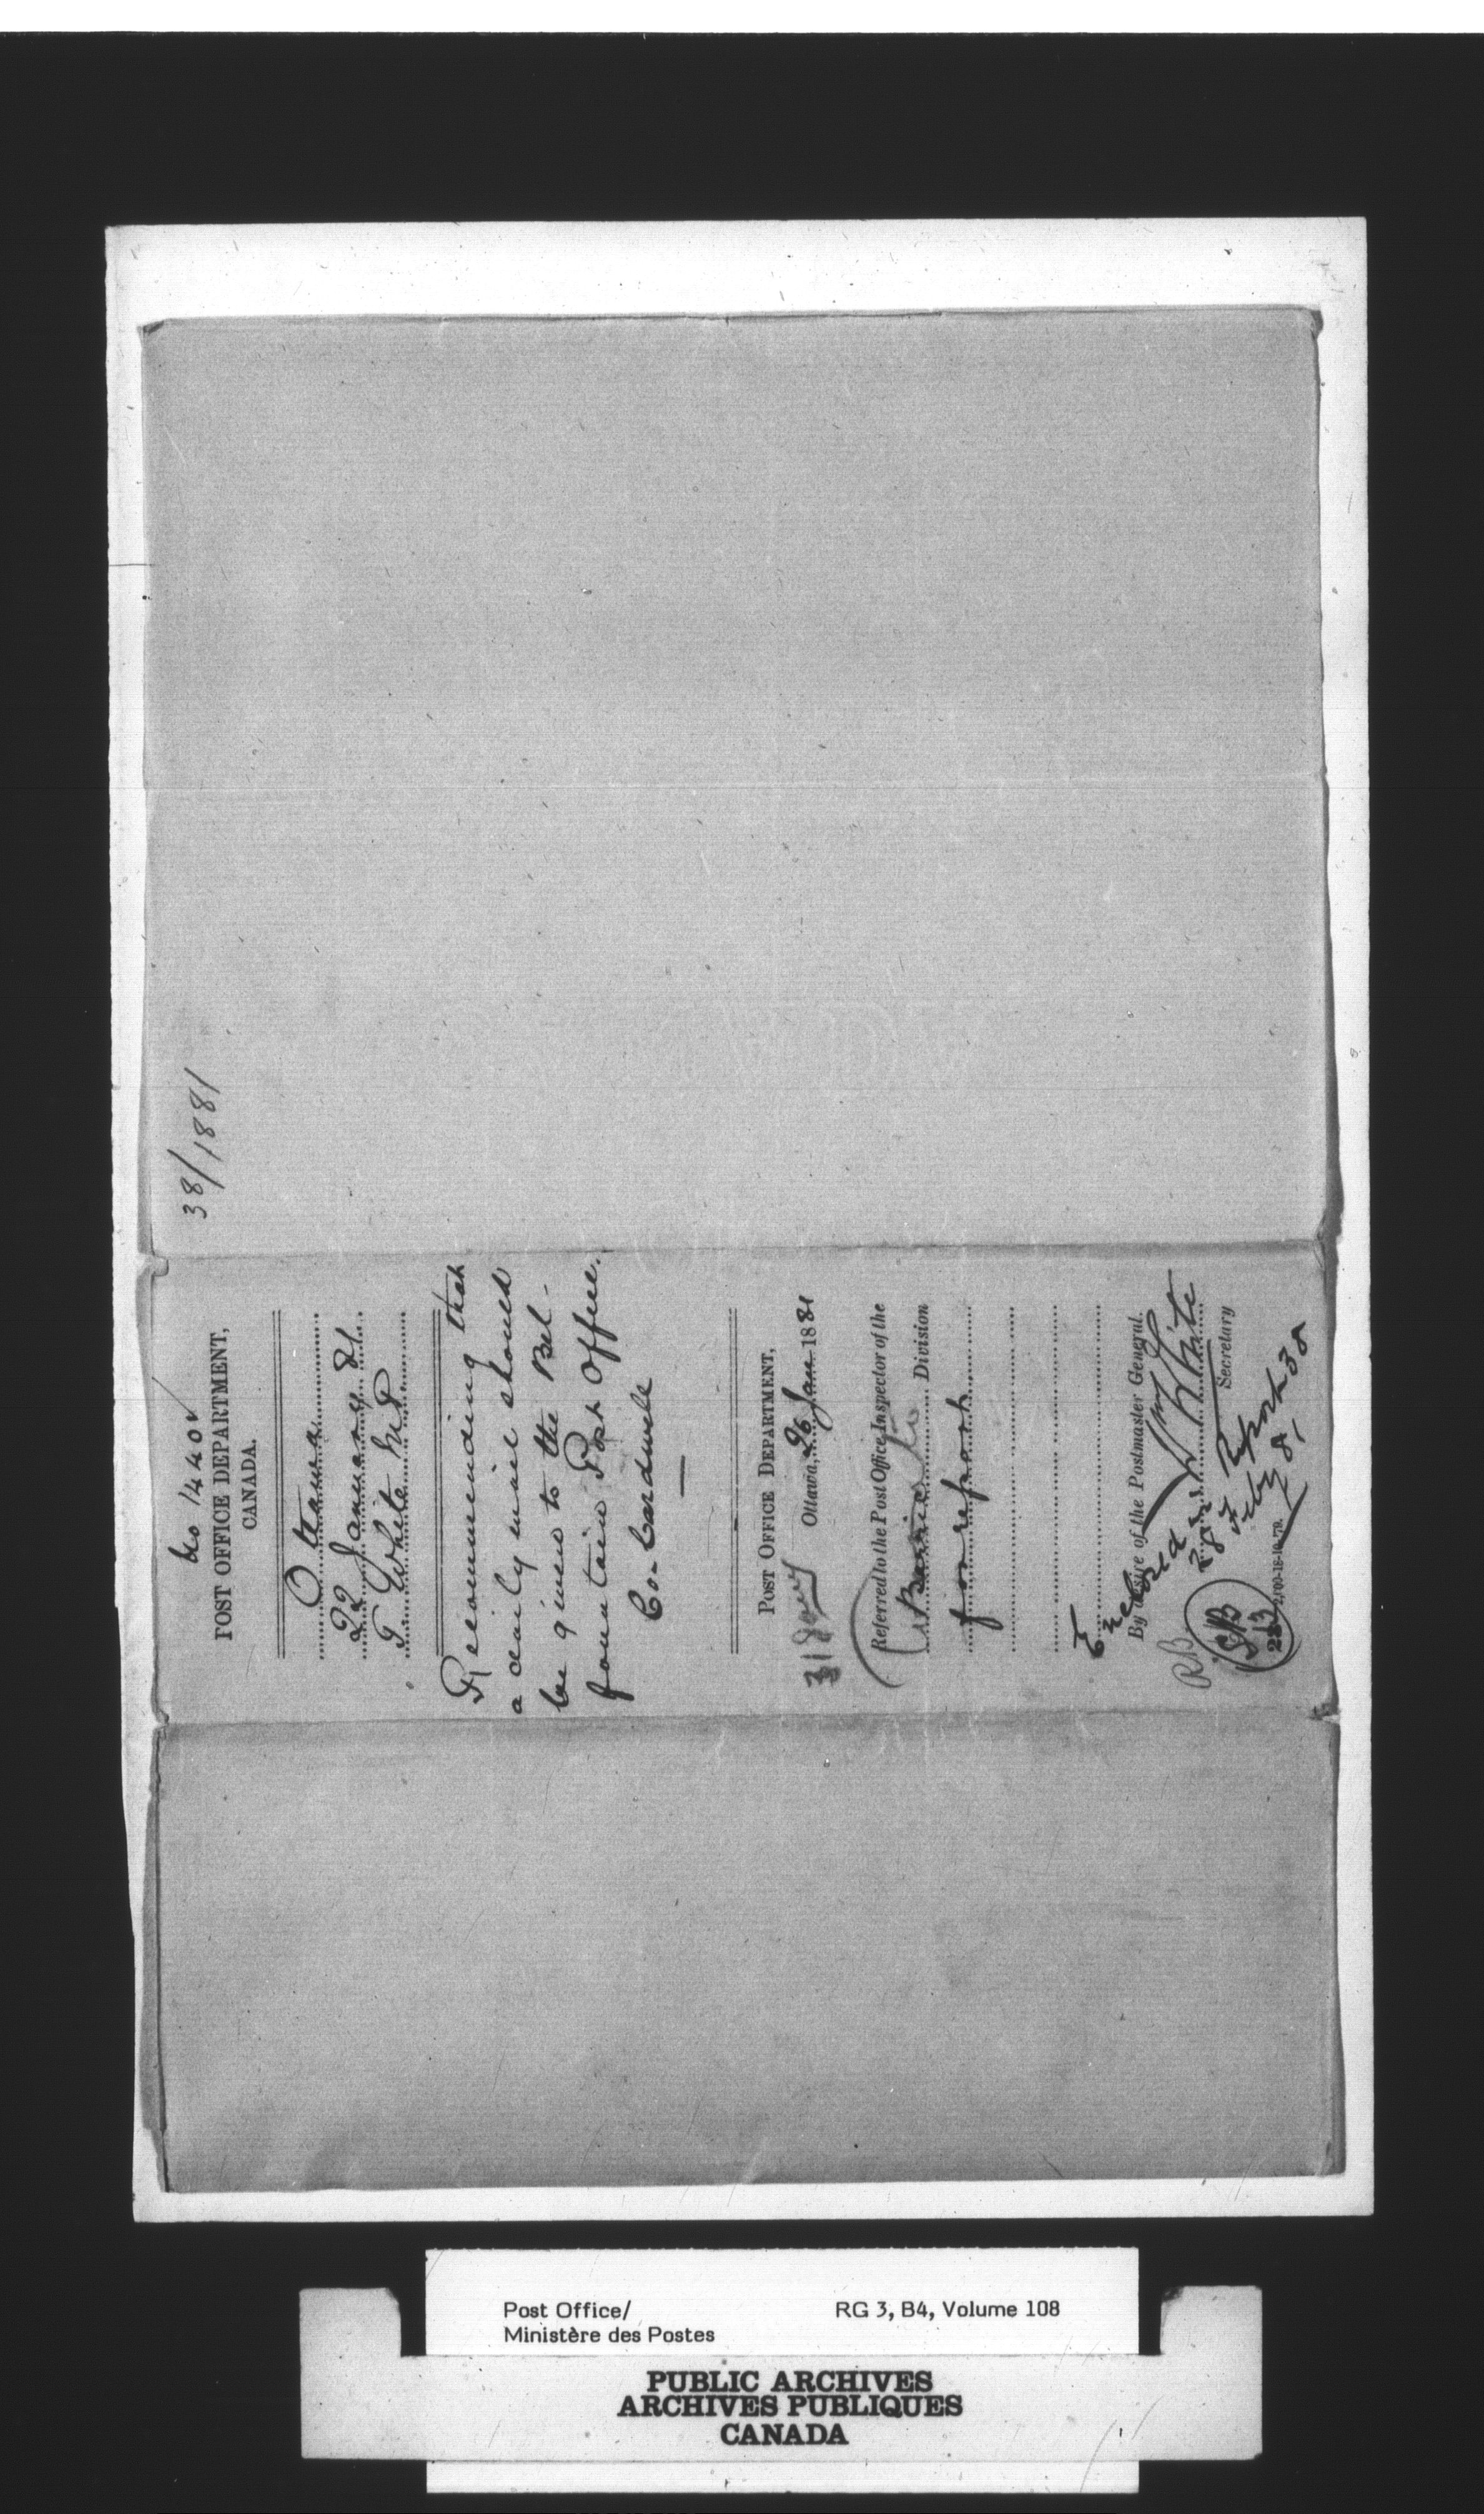 38/1881
No 14402
POST OFFICE DEPARTMENT,
CANADA.
Ottawa
22 January 81
T. White M.P.
Recommending that
a daily mail should
be given to the Bel-
fountain Post Office.
Co- Cardwell
POST OFFICE DEPARTMENT,
Ottawa, 26 Jan 1881
31 Jany
Referred to the Post Office Inspector of the
Barrie Division
for report
By desire of the Postmaster General.
Wm White
Secretary
Enclosed
Report 38
Feby 81
RB
2,000-18-10-'79.
Post Office/
Ministère des Postes
RG 3, B4, Volume 108
PUBLIC ARCHIVES
ARCHIVES PUBLIQUES
CANADA